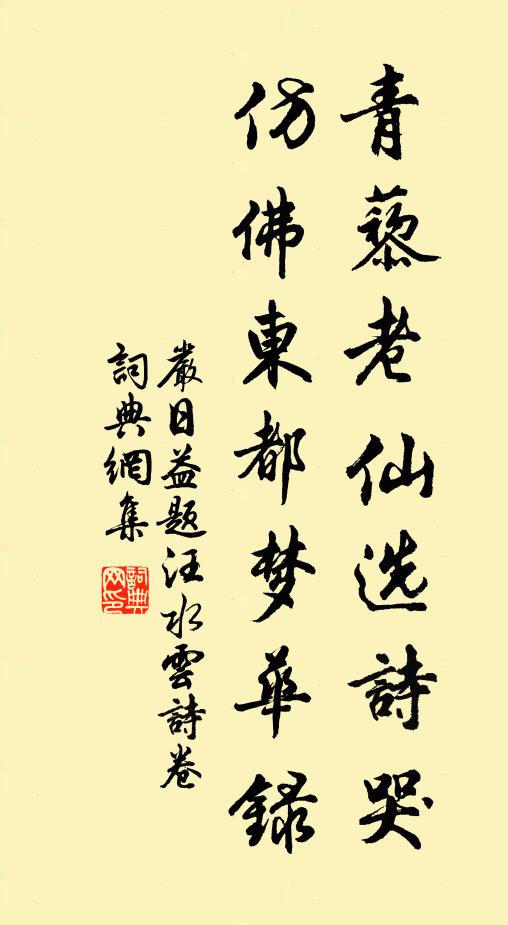 青藜老仙选詩哭
仿佛東都梦華録
嚴日益题汪水雲詩卷
詞典網集
詞典网印